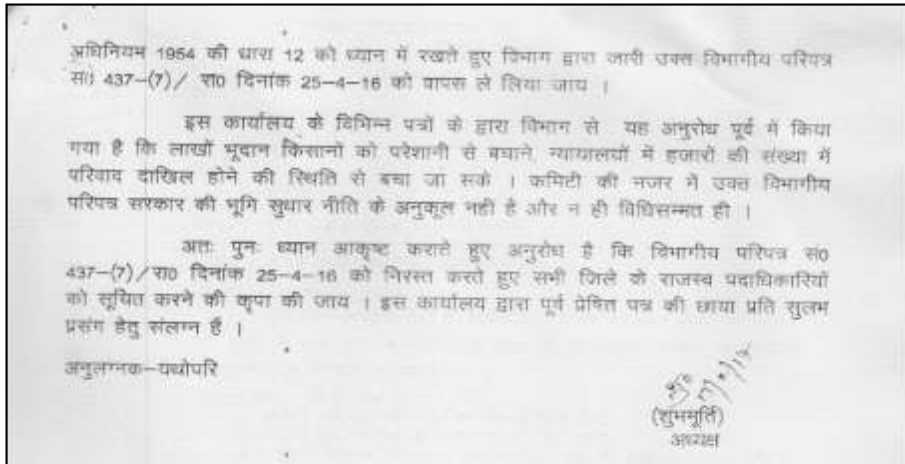 अधिनियम 1954 की धारा 12 को ध्यान में रखते हुए विभाग द्वारा जारी उक्त विभागीय परिपत्र
सं0 437-(7)/ रा0 दिनांक 25-4-16 को वापस ले लिया जाय ।
इस कार्यालय के विभिन्न पत्रों के द्वारा विभाग से यह अनुरोध पूर्व में किया
गया है कि लाखों भूदान किसानों को परेशानी से बचाने, न्यायालयों में हजारों की संख्या में
परिवाद दाखिल होने की स्थिति से बचा जा सके । कमिटी की नजर में उक्त विभागीय
परिपत्र सरकार की भूमि सुधार नीति के अनुकूल नहीं है और न ही विधिसम्मत ही ।
अतः पुनः ध्यान आकृष्ट कराते हुए अनुरोध है कि विभागीय परिपत्र सं0
437-(7)/रा0 दिनांक 25-4-16 को निरस्त करते हुए सभी जिले के राजस्व पदाधिकारियों
को सूचित करने की कृपा की जाय । इस कार्यालय द्वारा पूर्व प्रेषित पत्र की छाया प्रति सुलभ
प्रसंग हेतु संलग्न है ।
अनुलग्नक-यथोपरि
(शुभमूर्ति)
अध्यक्ष